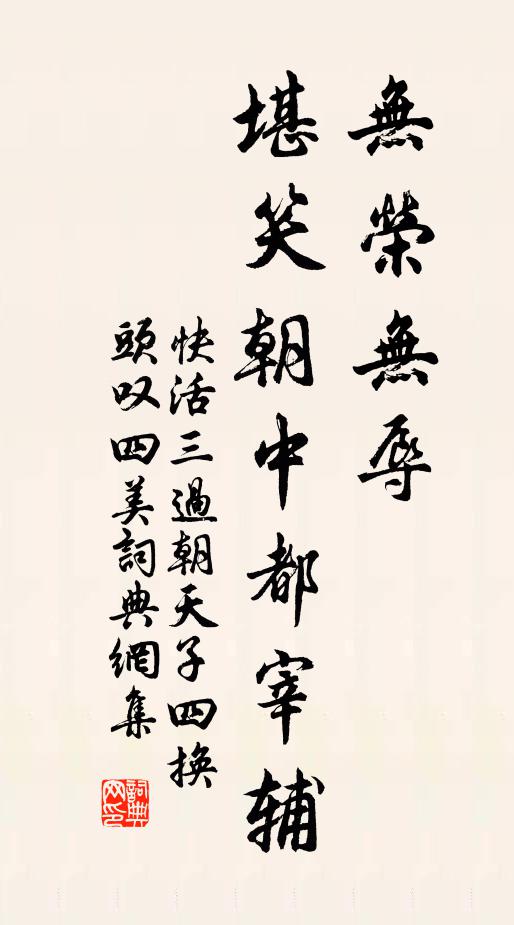 無榮無辱
堪笑朝中都宰輔
快活三過朝天子四換
頭叹四美詞典網集
詞典
网印